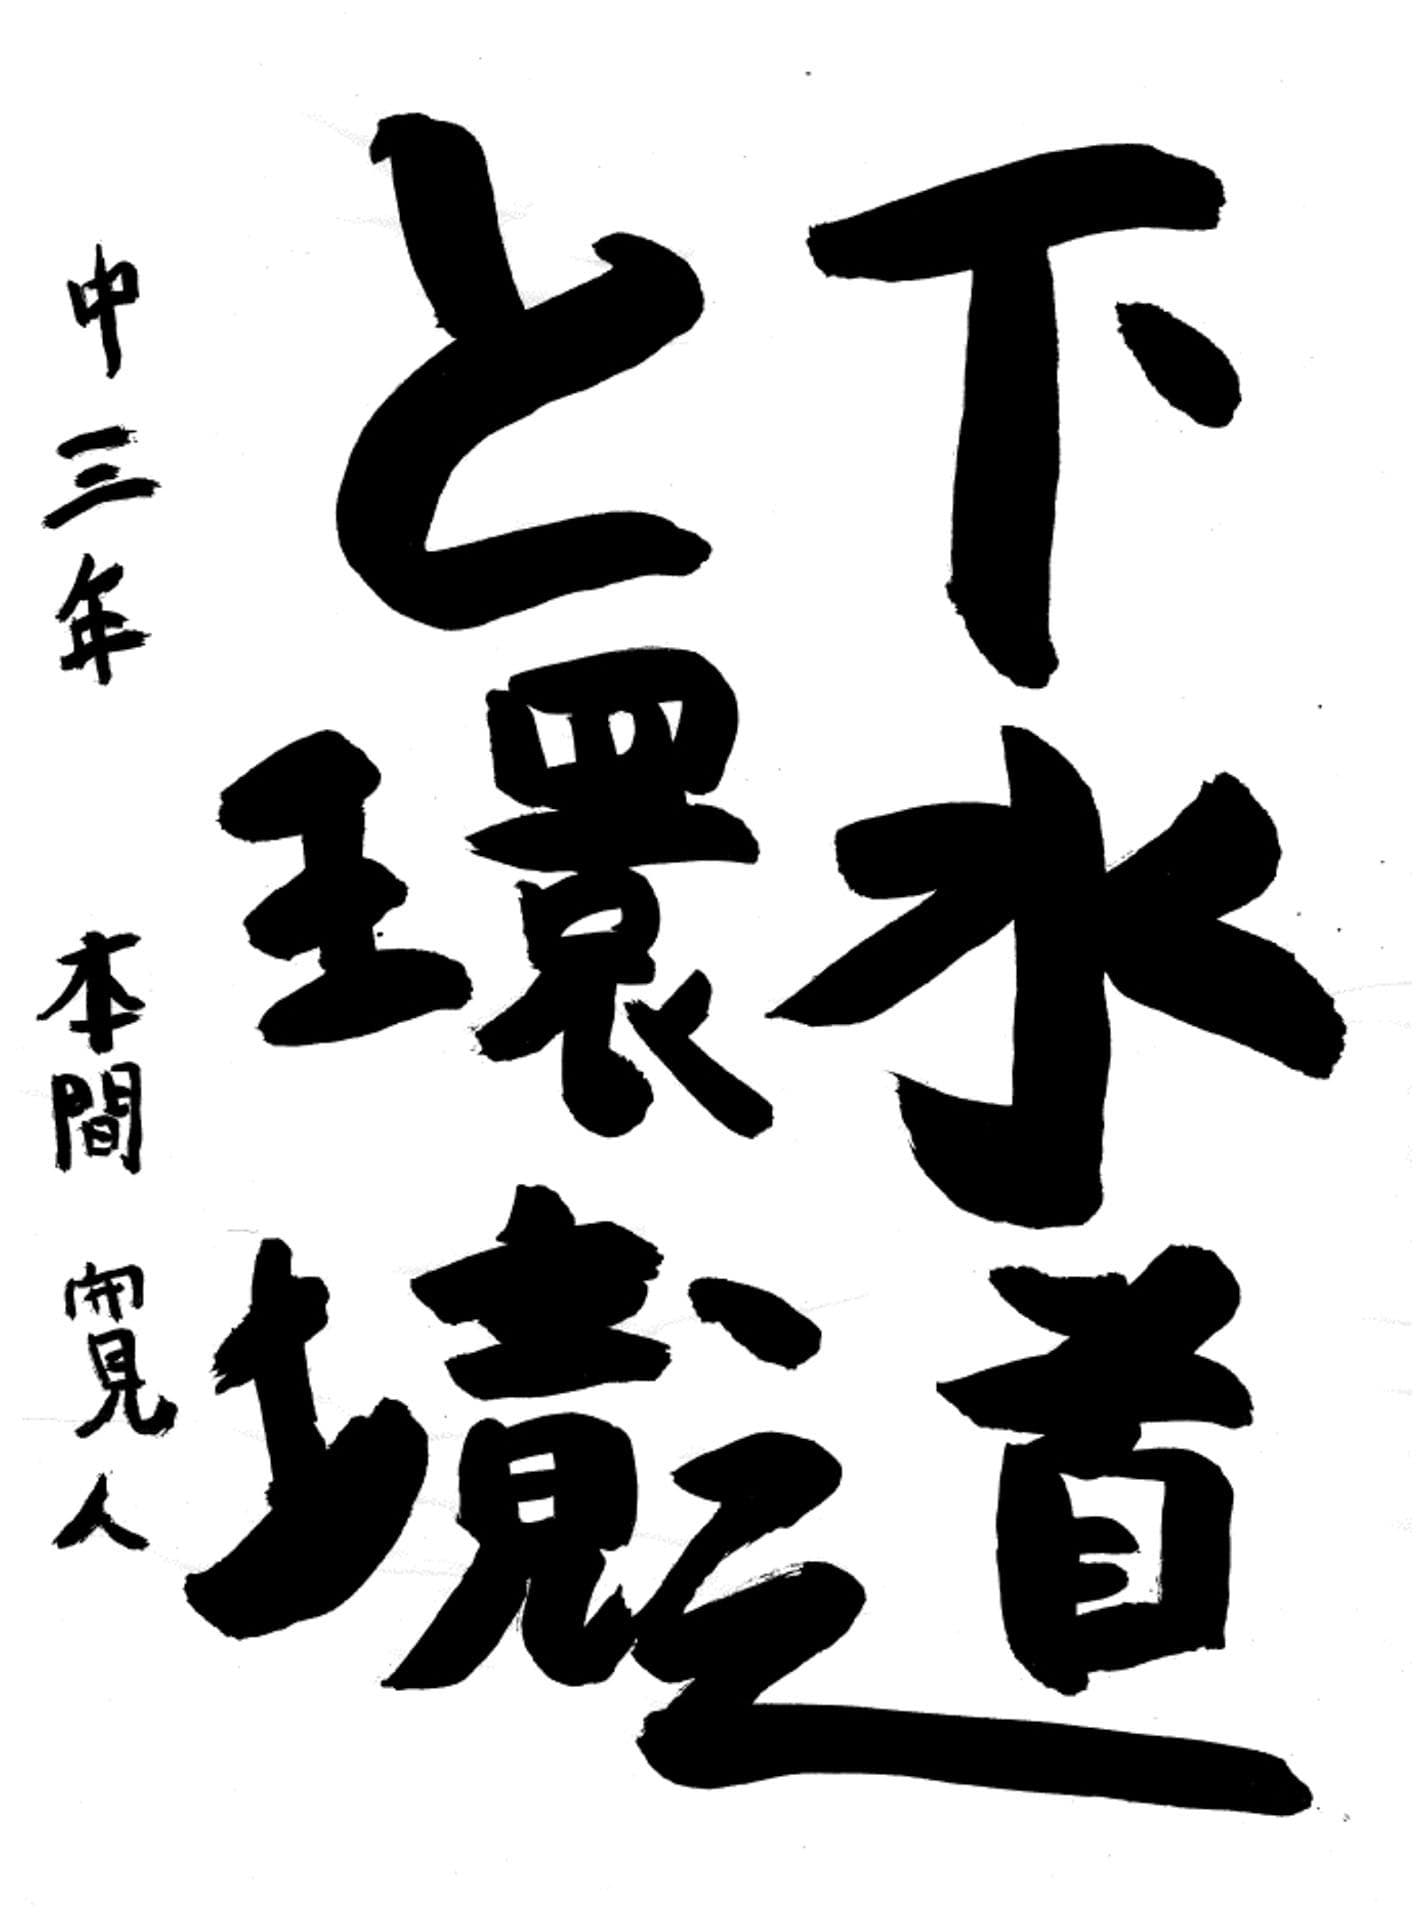 下水道
と環境
中三年 本間 寛人